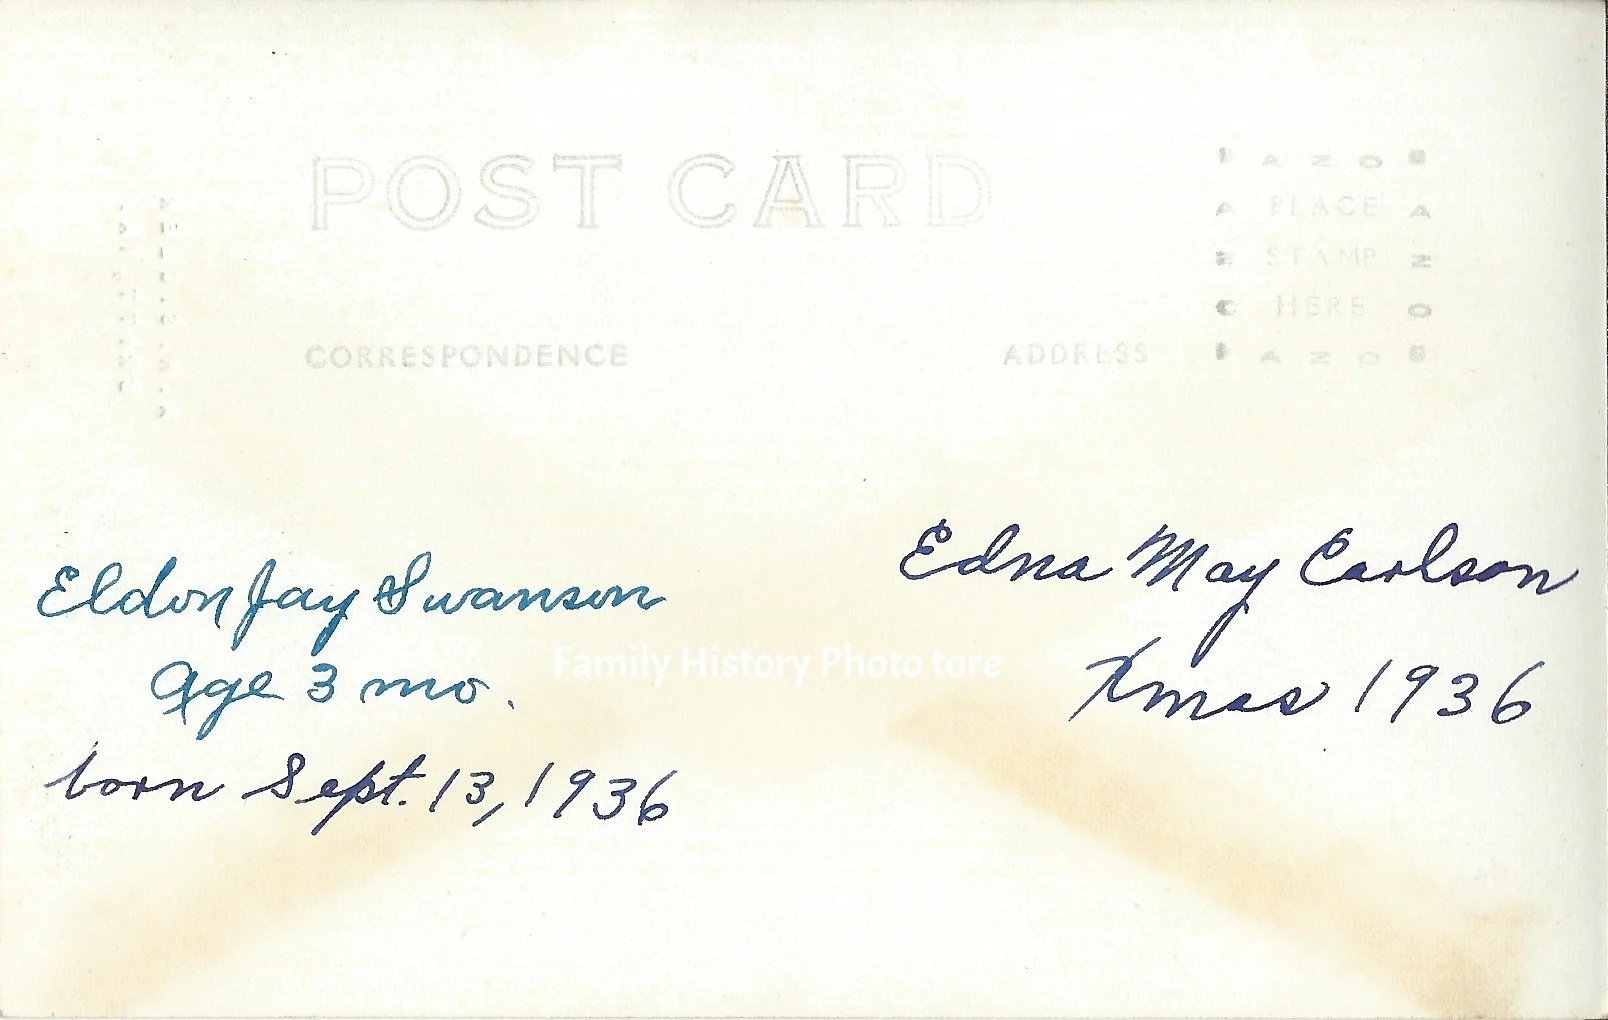 POST CARD
AZO
PLACE
STAMP
HERE
AZO
CORRESPONDENCE
ADDRESS
Eldon Jay Swanson
Age 3 mo.
born Sept. 13, 1936
Edna May Carlson
Xmas 1936
Family History Photo tore